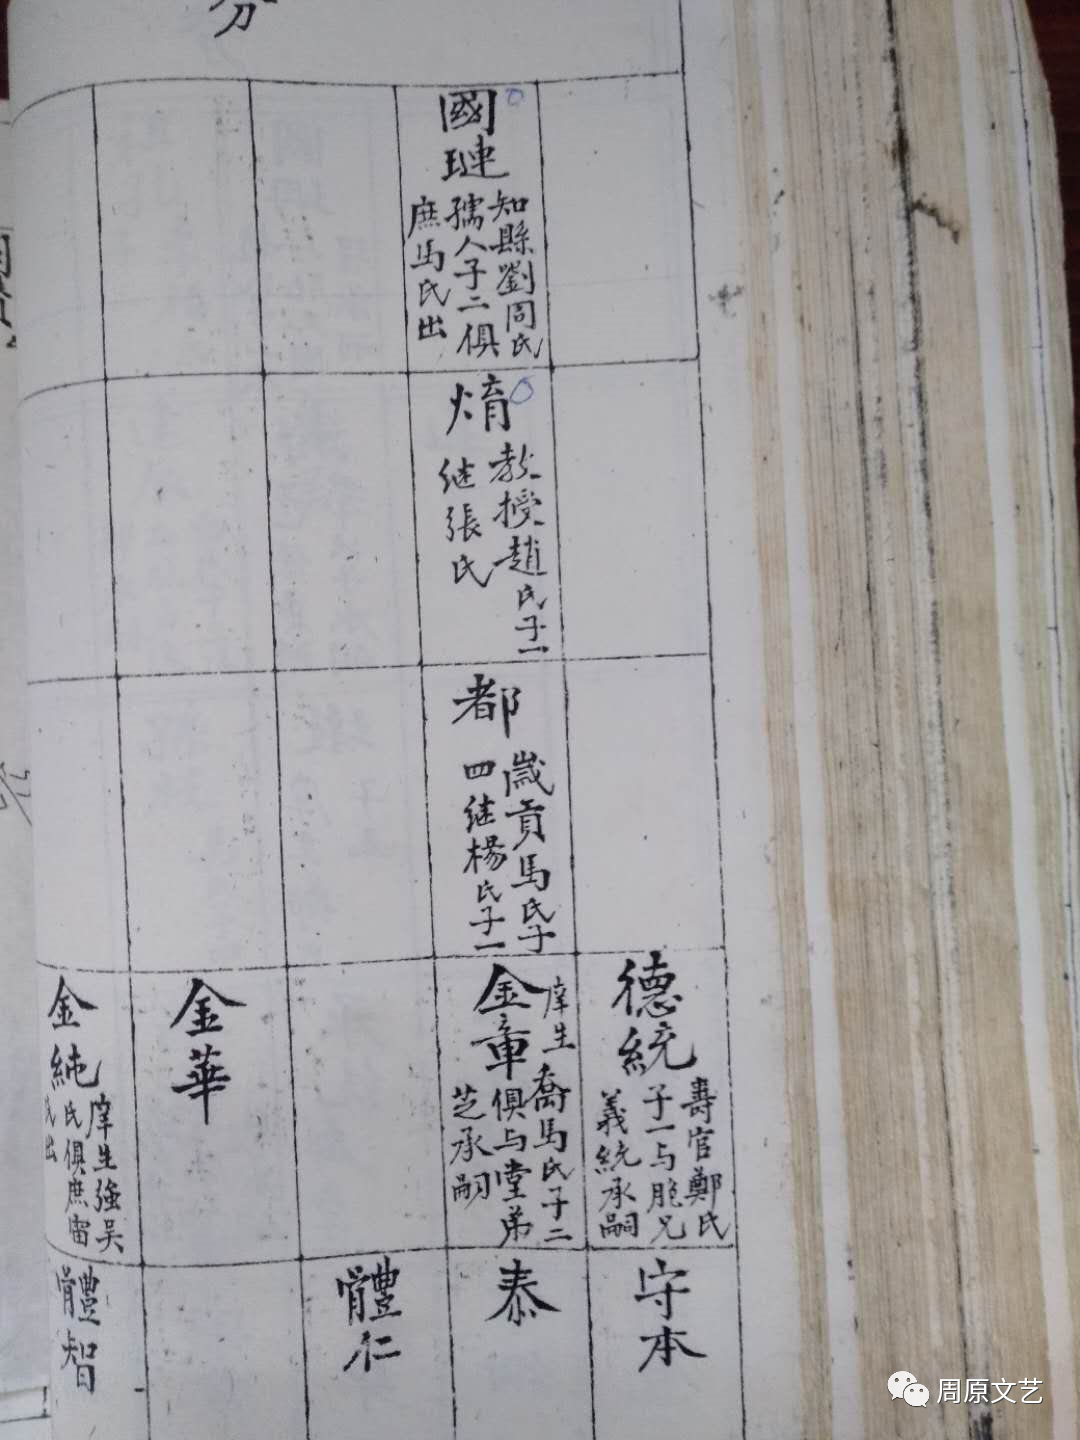 分
國璉
知縣劉周氏
孺人子二俱
庶馬氏出
焴
教授趙氏子一
继張氏
都
歲貢馬氏子
四继楊氏子一
德統
壽官鄭氏
子一与胞兄
義統承嗣
金章
庠生喬馬氏子二
俱与堂弟
芝承嗣
金華
金純
庠生強吴
氏俱庶甯
氏出
守本
泰
體仁
體智
周原文艺